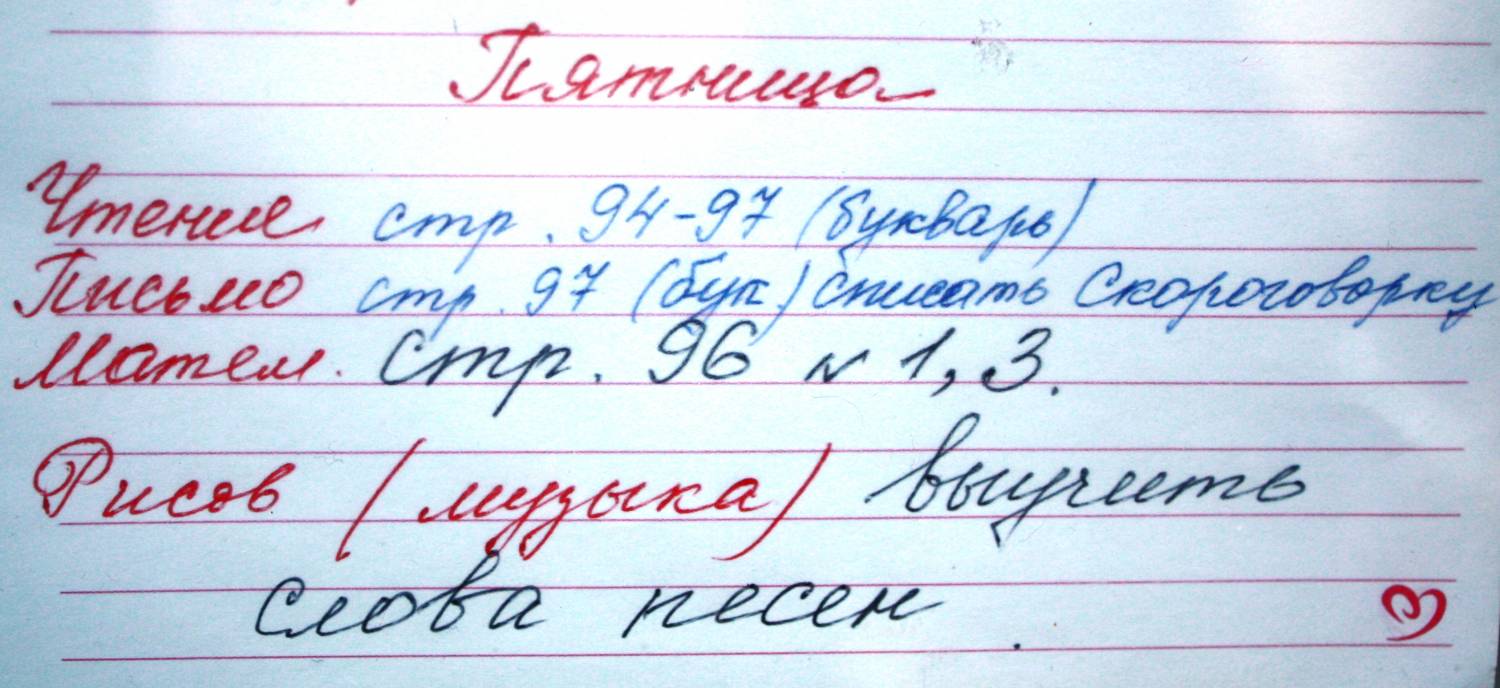 Пятница
Чтение стр. 94-97 (букварь)
Письмо стр. 97 (бук) списать Скороговорку
Матем. стр. 96 № 1, 3.
Рисов (музыка) выучить
слова песен.